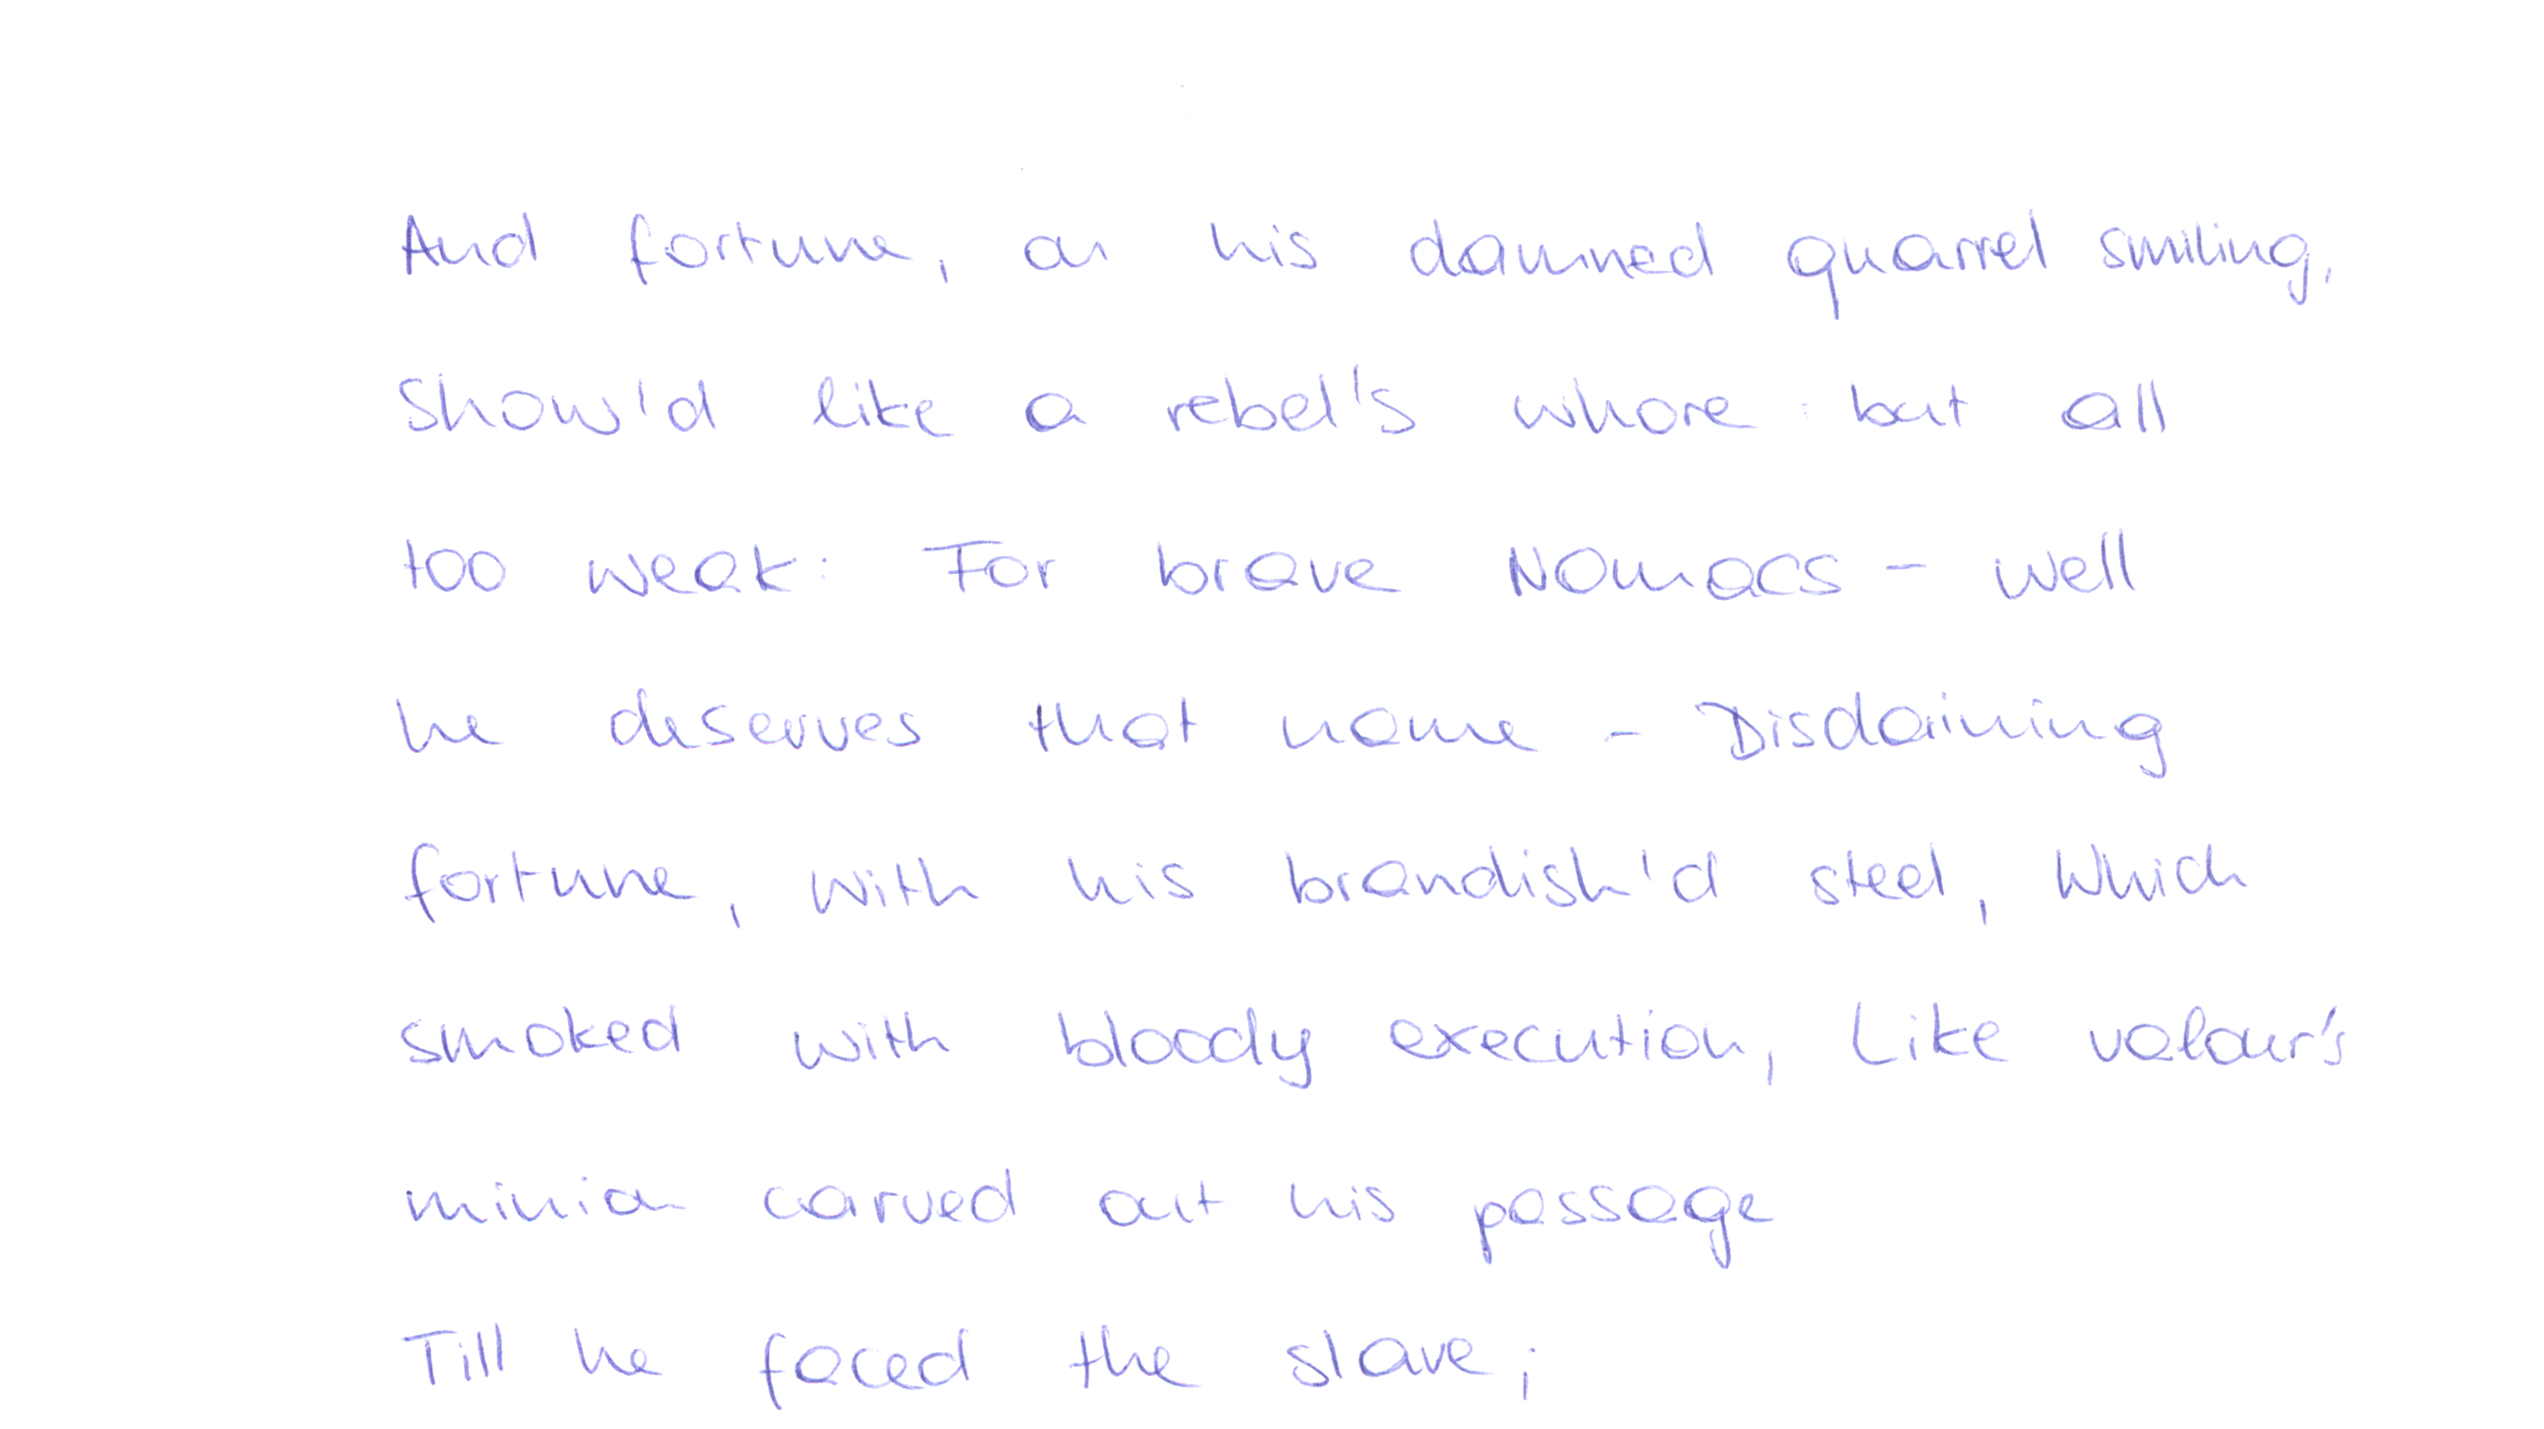 And fortune, on his damned quarrel smiling,
Show'd like a rebel's whore : but all
too weak: For brave Nomacs - well
he deserves that name - Disdaining
fortune, with his brandish'd steel, Which
smoked with bloody execution, Like valour's
minion carved out his passage
Till he faced the slave;